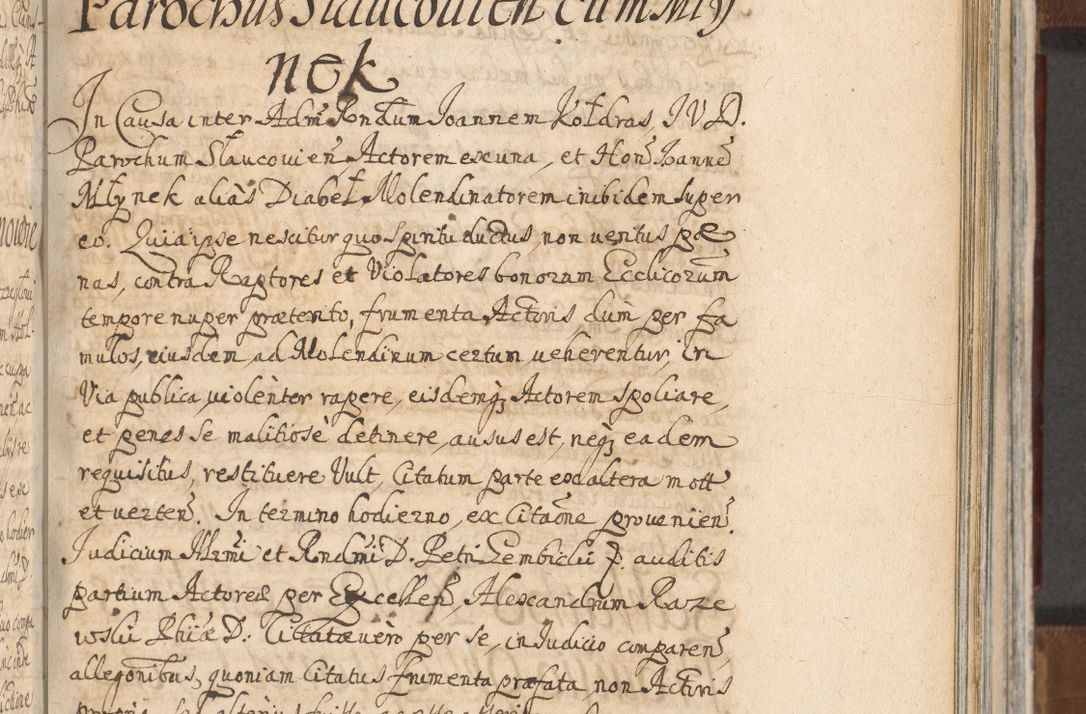 Parochus Slaucouien cum Mły
nek
In Causa inter Adm Rndum Joannem Kołdras, J V D.
Parochum Slaucouien, Actorem ex una, et Hon Joanne
Młynek alias Diabeł, Molendinatorem inibidem super
eo. Quia ipse nescitur quo spiritu ductus, non ueritus pæ
nas, contra Raptores et Violatores bonorum Ecclicorum
tempore nuper præterito, frumenta Actoris dum per fa
mulos, eiusdem, ad Molendinum certum ueherentur, in
Via publica, uiolenter rapere, eisdemq Actorem spoliare,
et penes se malitiosè detinere, ausus est, neq eadem
requisitus, restituere Vult, Citatum parte ex altera mott
et uerten. In termino hodierno, ex Citaone prouenien.
Judicium Illrmi et Rndmi D. Petri Gembicki P. auditis
partium Actoreæ per Excellen, Alexandrum Raze
wski Phiæ D. Citatæ uero per se, in Judicio comparen,
allegonibus, quoniam Citatus frumenta præfata non Actoris